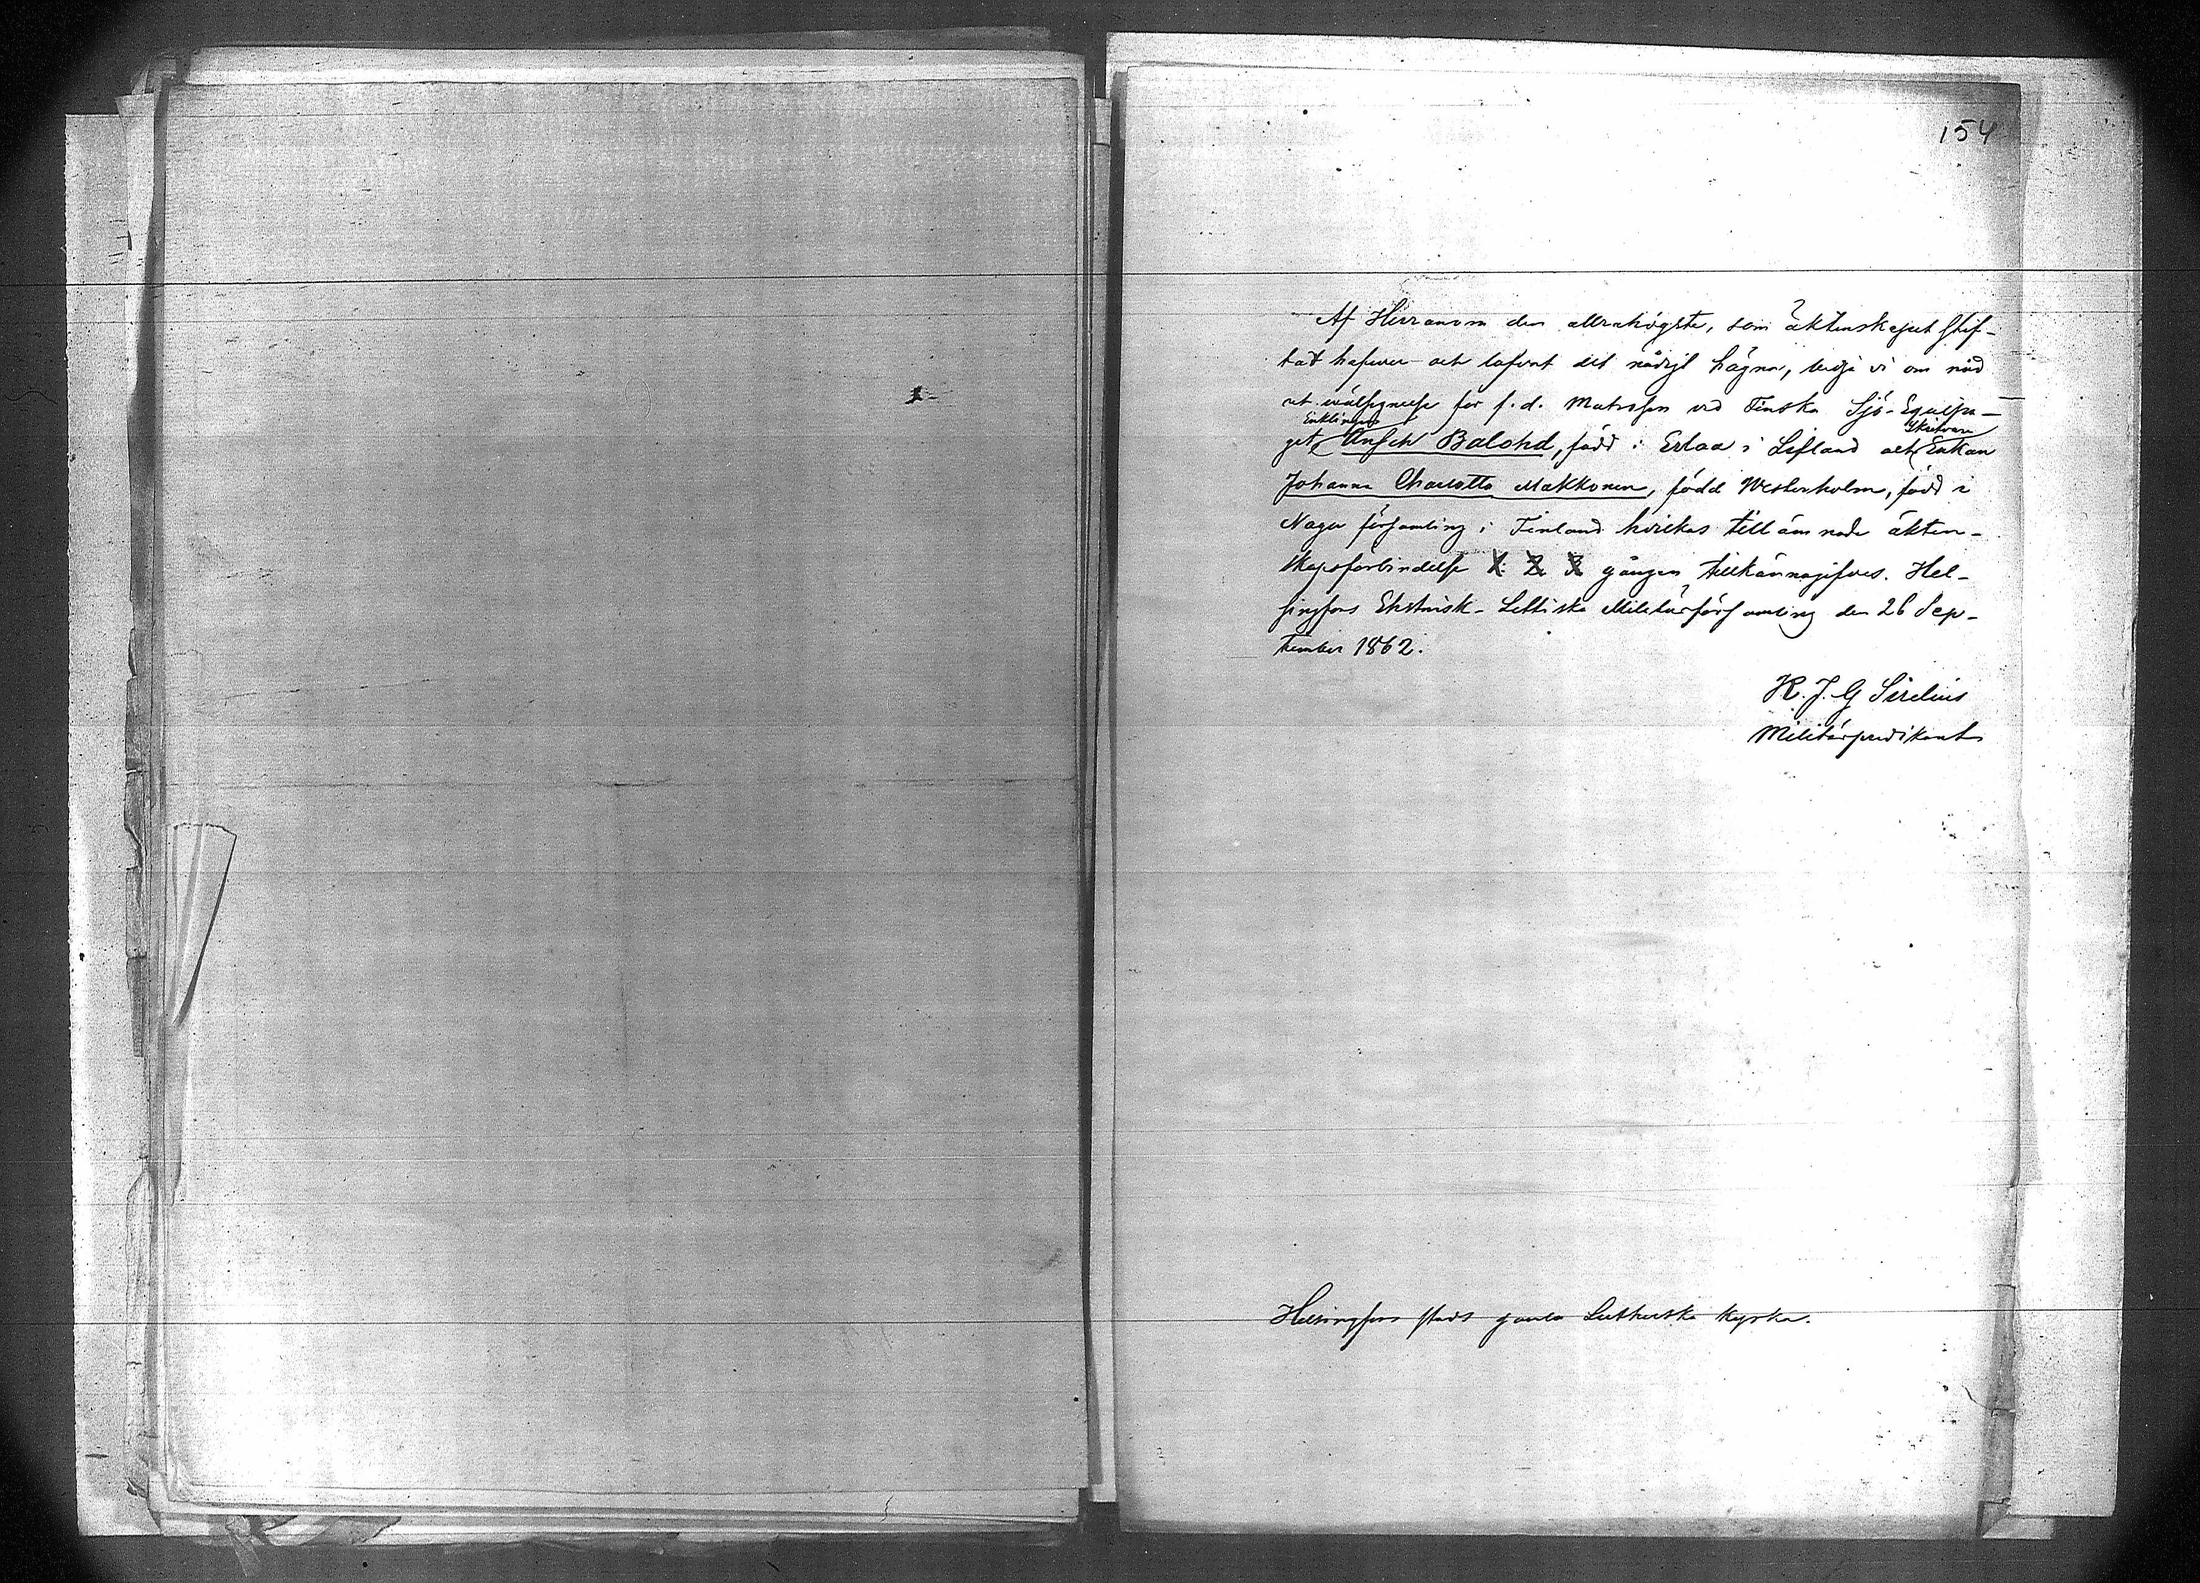 154
Af Herranom den allrahögste, som äktenskapet stif-
tat hafver och lofvat det nådigt hägna, bedje vi om nåd
och välsignelse för f. d. Matrosen vid Finska Sjö-Equipa-
Enklingen Skräddare
get Ansch Balohd, född i Erlaa i Lifland och Enkan
Johanna Charlotta Makkonen, född Westerholm, född i
Nagu församling i Finland hvilkas tillämnade äkten-
skapsförbindelse 1. 2. 3 gången tillkännagifves. Hel-
singfors Ehstnisk-Lettiska Militärförsamling den 26 Sep-
tember 1862.
K. J. G Sirelius
Militärpredikant
Helsingfors stads gamla Lutherska kyrka.